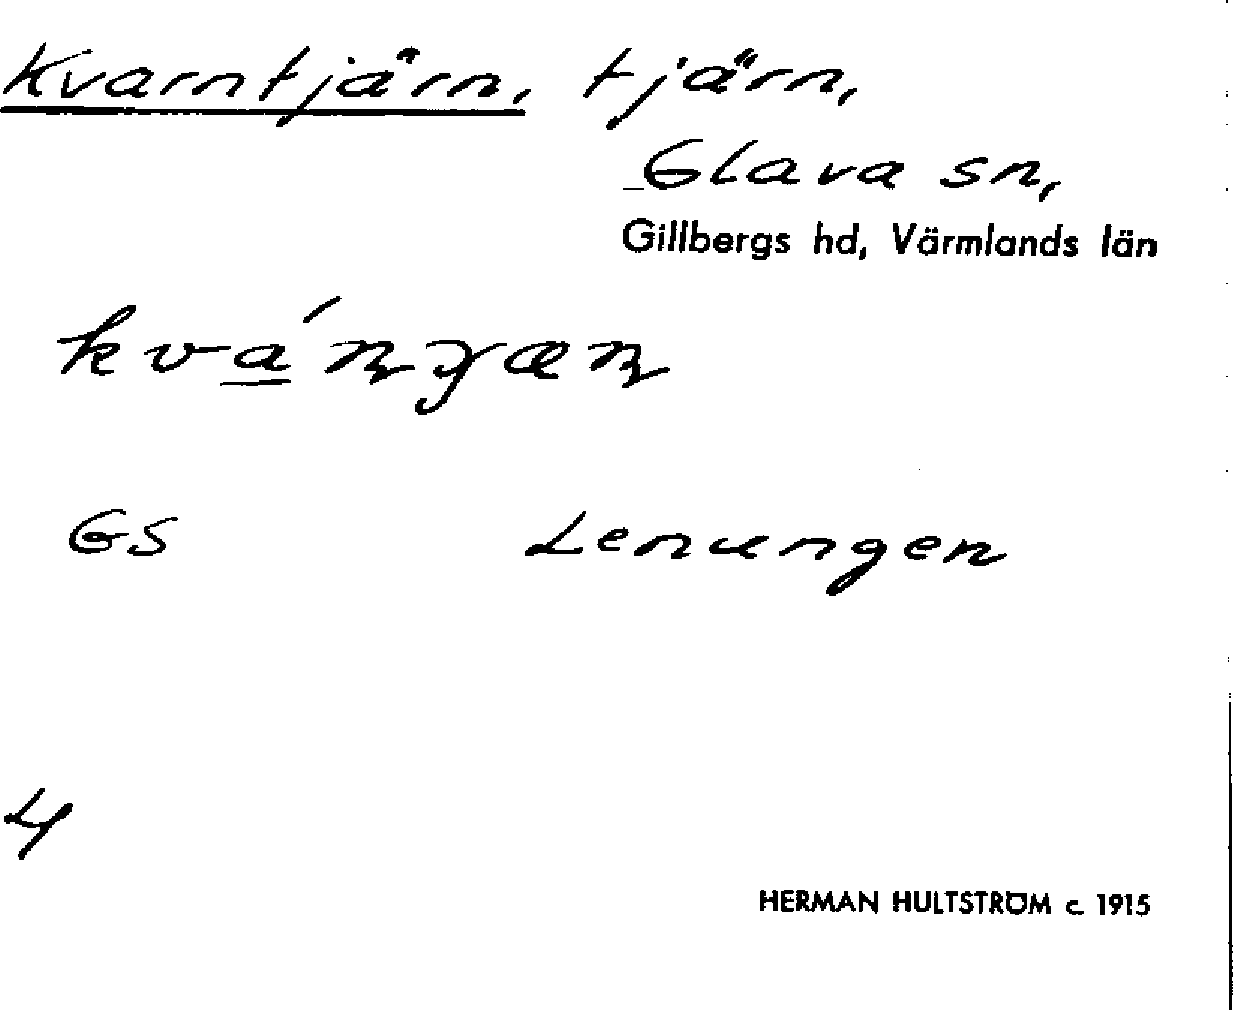 Kvarntjärn, tjärn,
Glava sn,
Gillbergs hd, Värmlands län
GS Lenungen
4
HERMAN HULTSTRÖM c. 1915